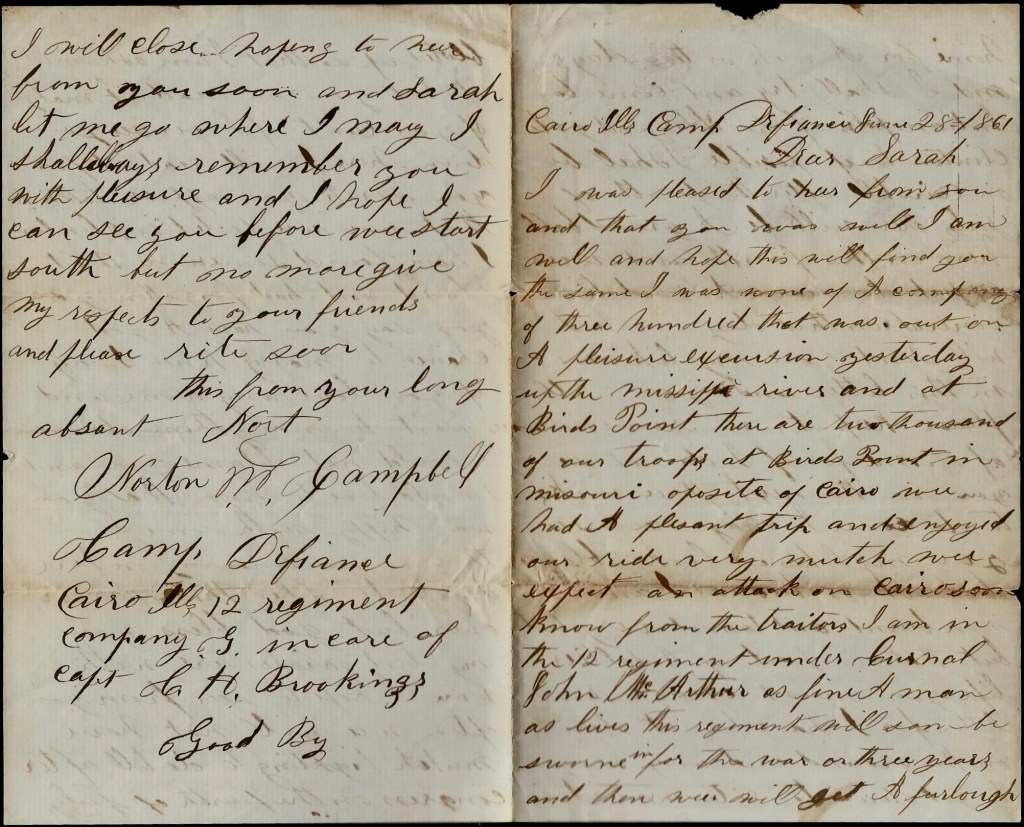 Cairo Ills Camp Defiance June 28th 1861
Dear Sarah
I was pleased to heer from you
and that you was well I am
well and hope this will find you
the same I was none of A company
of three hundred that was out on
A pleisure excursion yesterday
up the missippi river and at
Birds Point there are two thousand
of our troops at Birds Point in
misouri oposite of Cairo wee
had A plesant trip and enjoyed
our ride very mutch wee
expect an attack on Cairo soon
know from the traitors I am in
the 12 regiment under Curnal
John Mc Arthur as fine A man
as lives this regiment will soon be
sworne in for the war or three years
and then wee will get A furlough
I will close hopeing to heer
from you soon and Sarah
let me go where I may I
shall allways remember you
with pleisure and I hope I
can see you before wee start
south but no more give
my respects to your friends
and please rite soon
this from your long
absant Nort
Norton W. Campbell
Camp Defiance
Cairo Ills 12 regiment
company G. in care of
capt H. Brookings
Good By